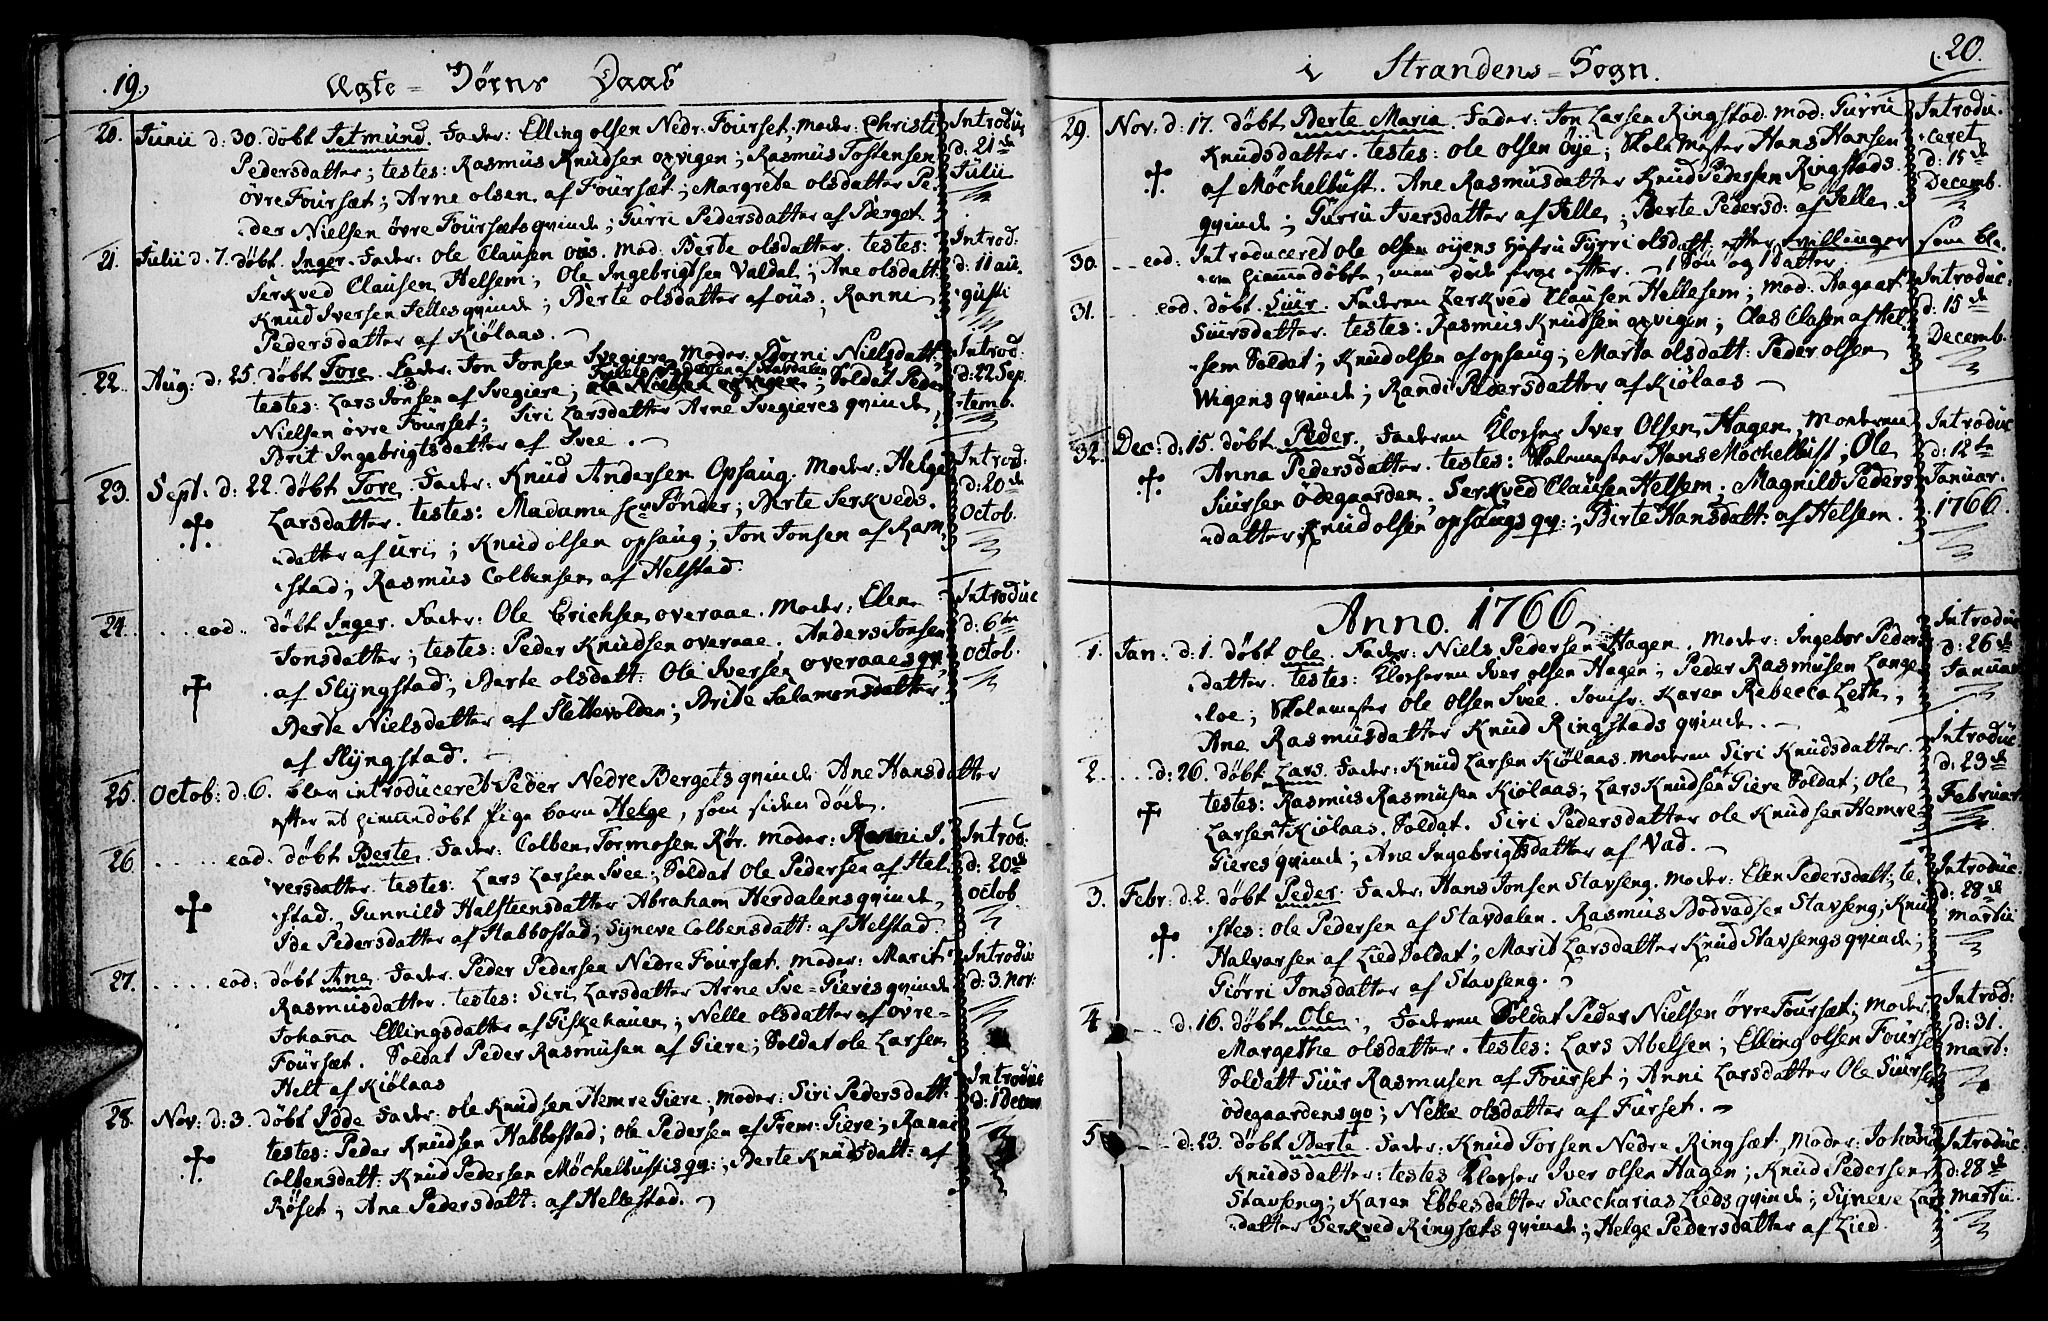 19.
Ægte = Børns Daab
20. Junii d: 30. døbt Jetmund. Fader: Elling olsen Nedr. Fourset; Moder: Christi
Pedersdatter; testes: Rasmus Knudsen opvigen; Rasmus Tostensen
øvre Foursæt; Arne olsen af Foursæt; Margrete olsdatter Pe-
der Nielsen øvre Foursæts qvinde; Gurri Pedersdatter af Berget.
Introdu
d: 21de
Julii
21. Julii d. 7. døbt Inger. Fader: Ole Clausen ous. Mod. Berte olsdatter. testes:
Serkved Clausen Helsem; Ole Ingebrigtsen Valdal; Ane olsdatt.
Knud Iversen Jelles qvinde; Berte olsdatter af ous; Ranni
Pedersdatter af Kiølaas.
Introd:
d: 11 au-
gusti
22. Aug: d: 25. døbt Tore. Fader: Jon Jonsen Svegiere, Moder: Borni Nielsdatt:
testes: Lars Jonsen af Svegiere; Soldat Peder
Nielsen øvre Fourset; Siri Larsdatter Arne Svegieres qvinde,
Brit Ingebrigtsdatter af Svee.
Introd:
d: 22 Sep-
temb.
23. Sept: d: 22. døbt Tore. Fader: Knud Andersen Opsaug. Moder: Helge
Larsdatter. testes: Madame Tønder; Berte Serkveds-
datter af Uri; Knud olsen opsaug; Jon Jonsen af Ram-
stad; Rasmus Colbensen af Helstad.
Introd:
d: 20de
Octob.
24. eod.. døbt Inger. Fader: Ole Erichsen overaae. Moder: Elen
Jonsdatter; testes: Peder Knudsen overaae; Anders Jonsen
af Slyngstad; Berte olsdatt: Ole Iversen overaaes qv;
Berte Nielsdatter af Slettevolden; Brite Salamonsdatter
af Slyngstad.
Introduc
d: 6te
Octob.
25. Octob: d: 6. blev introduceret Peder Nedre Bergets qvinde Ane Hansdatter
efter et hiemmedøbt Pige barn Helge, som siden døde.
26. eod. døbt Berte. Fader: Colben Tormosen Rør. Moder: Ranni I-
versdatter. testes: Lars Larsen Svee; Soldat Ole Pedersen af Hel-
stad, Gunnild Halsteensdatter Abraham Herdalens qvinde,
Ide Pedersdatter af Habbostad; Syneve Colbensdatt: af Helstad.
Introd:
d: 20de
octob
27. eod: døbt Ane. Fader. Peder Pedersen Nedre Foursæt. Moder: Marit
Rasmusdatter. testes: Siri Larsdatter Arne Sve=Gieres qvinde
Johana Ellingsdatter af Giskehauen; Nelle olsdatter af øvre-
Foursæt. Soldat Peder Rasmusen af Giere; Soldat ole Larsen
Helt af Kiølaas
Introdu
d: 3. Nov:
28. Nov: d: 3. døbt Idde Fader: ole Knudsen Hemre Giere; Moder: Siri Pedersdatt:
testes: Peder Knudsen Habbostad; ole Pedersen af Frem: Giere; Ranne
Colbensdatt: Knud Pedersen Møchelbustis qv:; Berte Knudsdatt: af
Røset; Ane Pedersdatt: af Hellestad.
Introduc
d: 1 Decem
i Strandens = Sogn.
20.
29. Nov: d. 17. døbt Berte Maria. Fader: Jon Larsen Ringstad. Mod: Gurru
Knudsdatter. testes: ole olsen Øye; Skolemester Hans Hansen
af Møchelbust. Ane Rasmusdatter Knud Pedersen Ringstads
qvinde; Gurru Iversdatter af Jelle; Berte Pedersd: af Jelle.
Introdu-
ceret
d: 15de
Decemb.
30. eod: Introduceret ole olsen øyens hustru Gurri olsdatt: efter tvillinger som ble-
ve hiemmedøbte, men døde strax efter. 1 Søn og 1 Datter.
31. eod. døbt Siur. Faderen Zerkved Clausen Hellesem; Mod. Aagaat
Siursdatter. testes: Rasmus Knudsen opvigen; Clas Clasen af Hel-
sem Soldat; Knud olsen af opsaug; Marta olsdatt: Peder olsen
Wigens qvinde; Randi Pedersdatter af Kiølaas
Introduc:
d: 15de
Decemb.
32. Dec: d: 15. døbt Peder. Faderen Klocher Iver Olsen Hagen, Moderen
Anna Pedersdatter. testes: Skolemester Hans Møchelbust; Ole
Siursen Ødegaarden, Serkved Clausen Helsem; Magnild Peders-
datter Knud olsen opsaugs qv:; Birte Hansdatt: af Helsem.
Introduc
d: 12te
Januar.
1766.
Anno. 1766
1. Jan: d: 1. døbt ole. Fader: Niels Pedersen Hagen. Moder: Ingebor Peders-
datter. testes: Klocheren Iver olsen Hagen; Peder Rasmusen Lange-
loe; Skolemester ole olsen Svee. Jomfr: Karen Rebecca Leth,
Ane Rasmusdatter Knud Ringstads qvinde.
Introduc
d: 26de
Januar
2. d: 26. døbt Lars. Fader: Knud Larsen Kiølaas. Moderen Siri Knudsdatter.
testes: Rasmus Rasmusen Kiølaas; Lars Knudsen Giere Soldat; ole
Larsen Kiølaas. Soldat. Siri Pedersdatter ole Knudsen Hemre-
Gieres qvinde; Ane Ingebrigtsdatter af Vad.
Introduc
d: 23de
Februar
3. Febr: d. 2. døbt Peder. Fader: Hans Jonsen Stavseng. Moder: Elen Pedersdatt; te-
stes: ole Pedersen af Stavdalen. Rasmus Bodvadsen Stavseng; Knud
Halvarsen af Lied Soldat; Marit Larsdatter Knud Stavsengs qvinde;
Giørri Jonsdatter af Stavseng.
Introduc:
d: 28de
Martii
4. d. 16. døbt Ole, Faderen Soldat Peder Nielsen øvre Fourset; Moder:
Margethe olsdatter. testes: Lars Abelsen; Elling olsen Fourse
Soldatt Siur Rasmusen af Fourset; Anni Larsdatter Ole Siursen
ødegaardens qv; Nelle olsdatter af Furset.
Introd:
d: 31.
Mart:
5. d: 23. døbt Berte. Fader: Knud Torsen Nedre Ringsæt, Moder: Johana
Knudsdatter: testes Klocher Iver olsen Hagen; Knud Pedersen
Stavseng; Karen Ebbesdatter Saccharias Lieds qvinde; Syneve Lars-
datter Serkved Ringsæts qvinde; Helge Pedersdatter af Lied.
Introduc:
d: 28de
Martii.